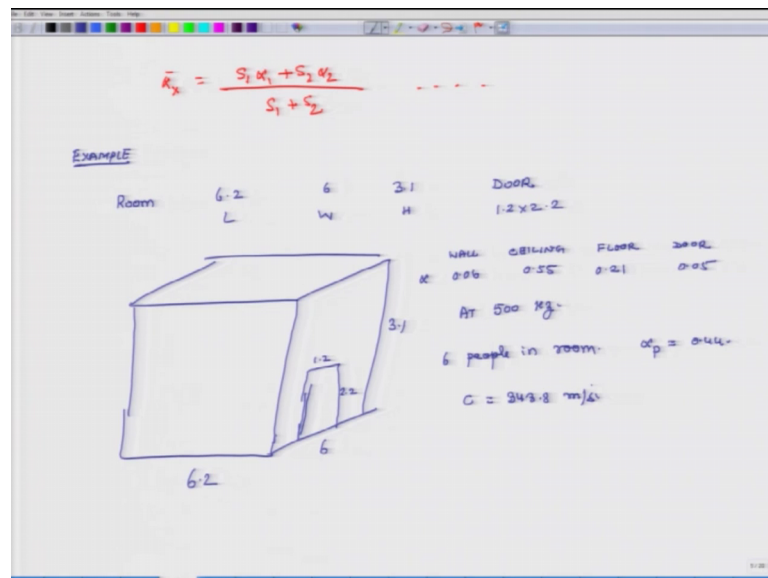 File Edit View Insert Actions Tools Help
ᾱx = (S1 α1 + S2 α2) / (S1 + S2) - - - - -
EXAMPLE
Room 6.2 6 3.1 DOOR
L W H 1.2 x 2.2
WALL CEILING FLOOR DOOR
α 0.06 0.55 0.21 0.05
AT 500 Hz.
6 people in room. αp = 0.44.
C = 343.8 m/s
3.1
1.2
2.2
6
6.2